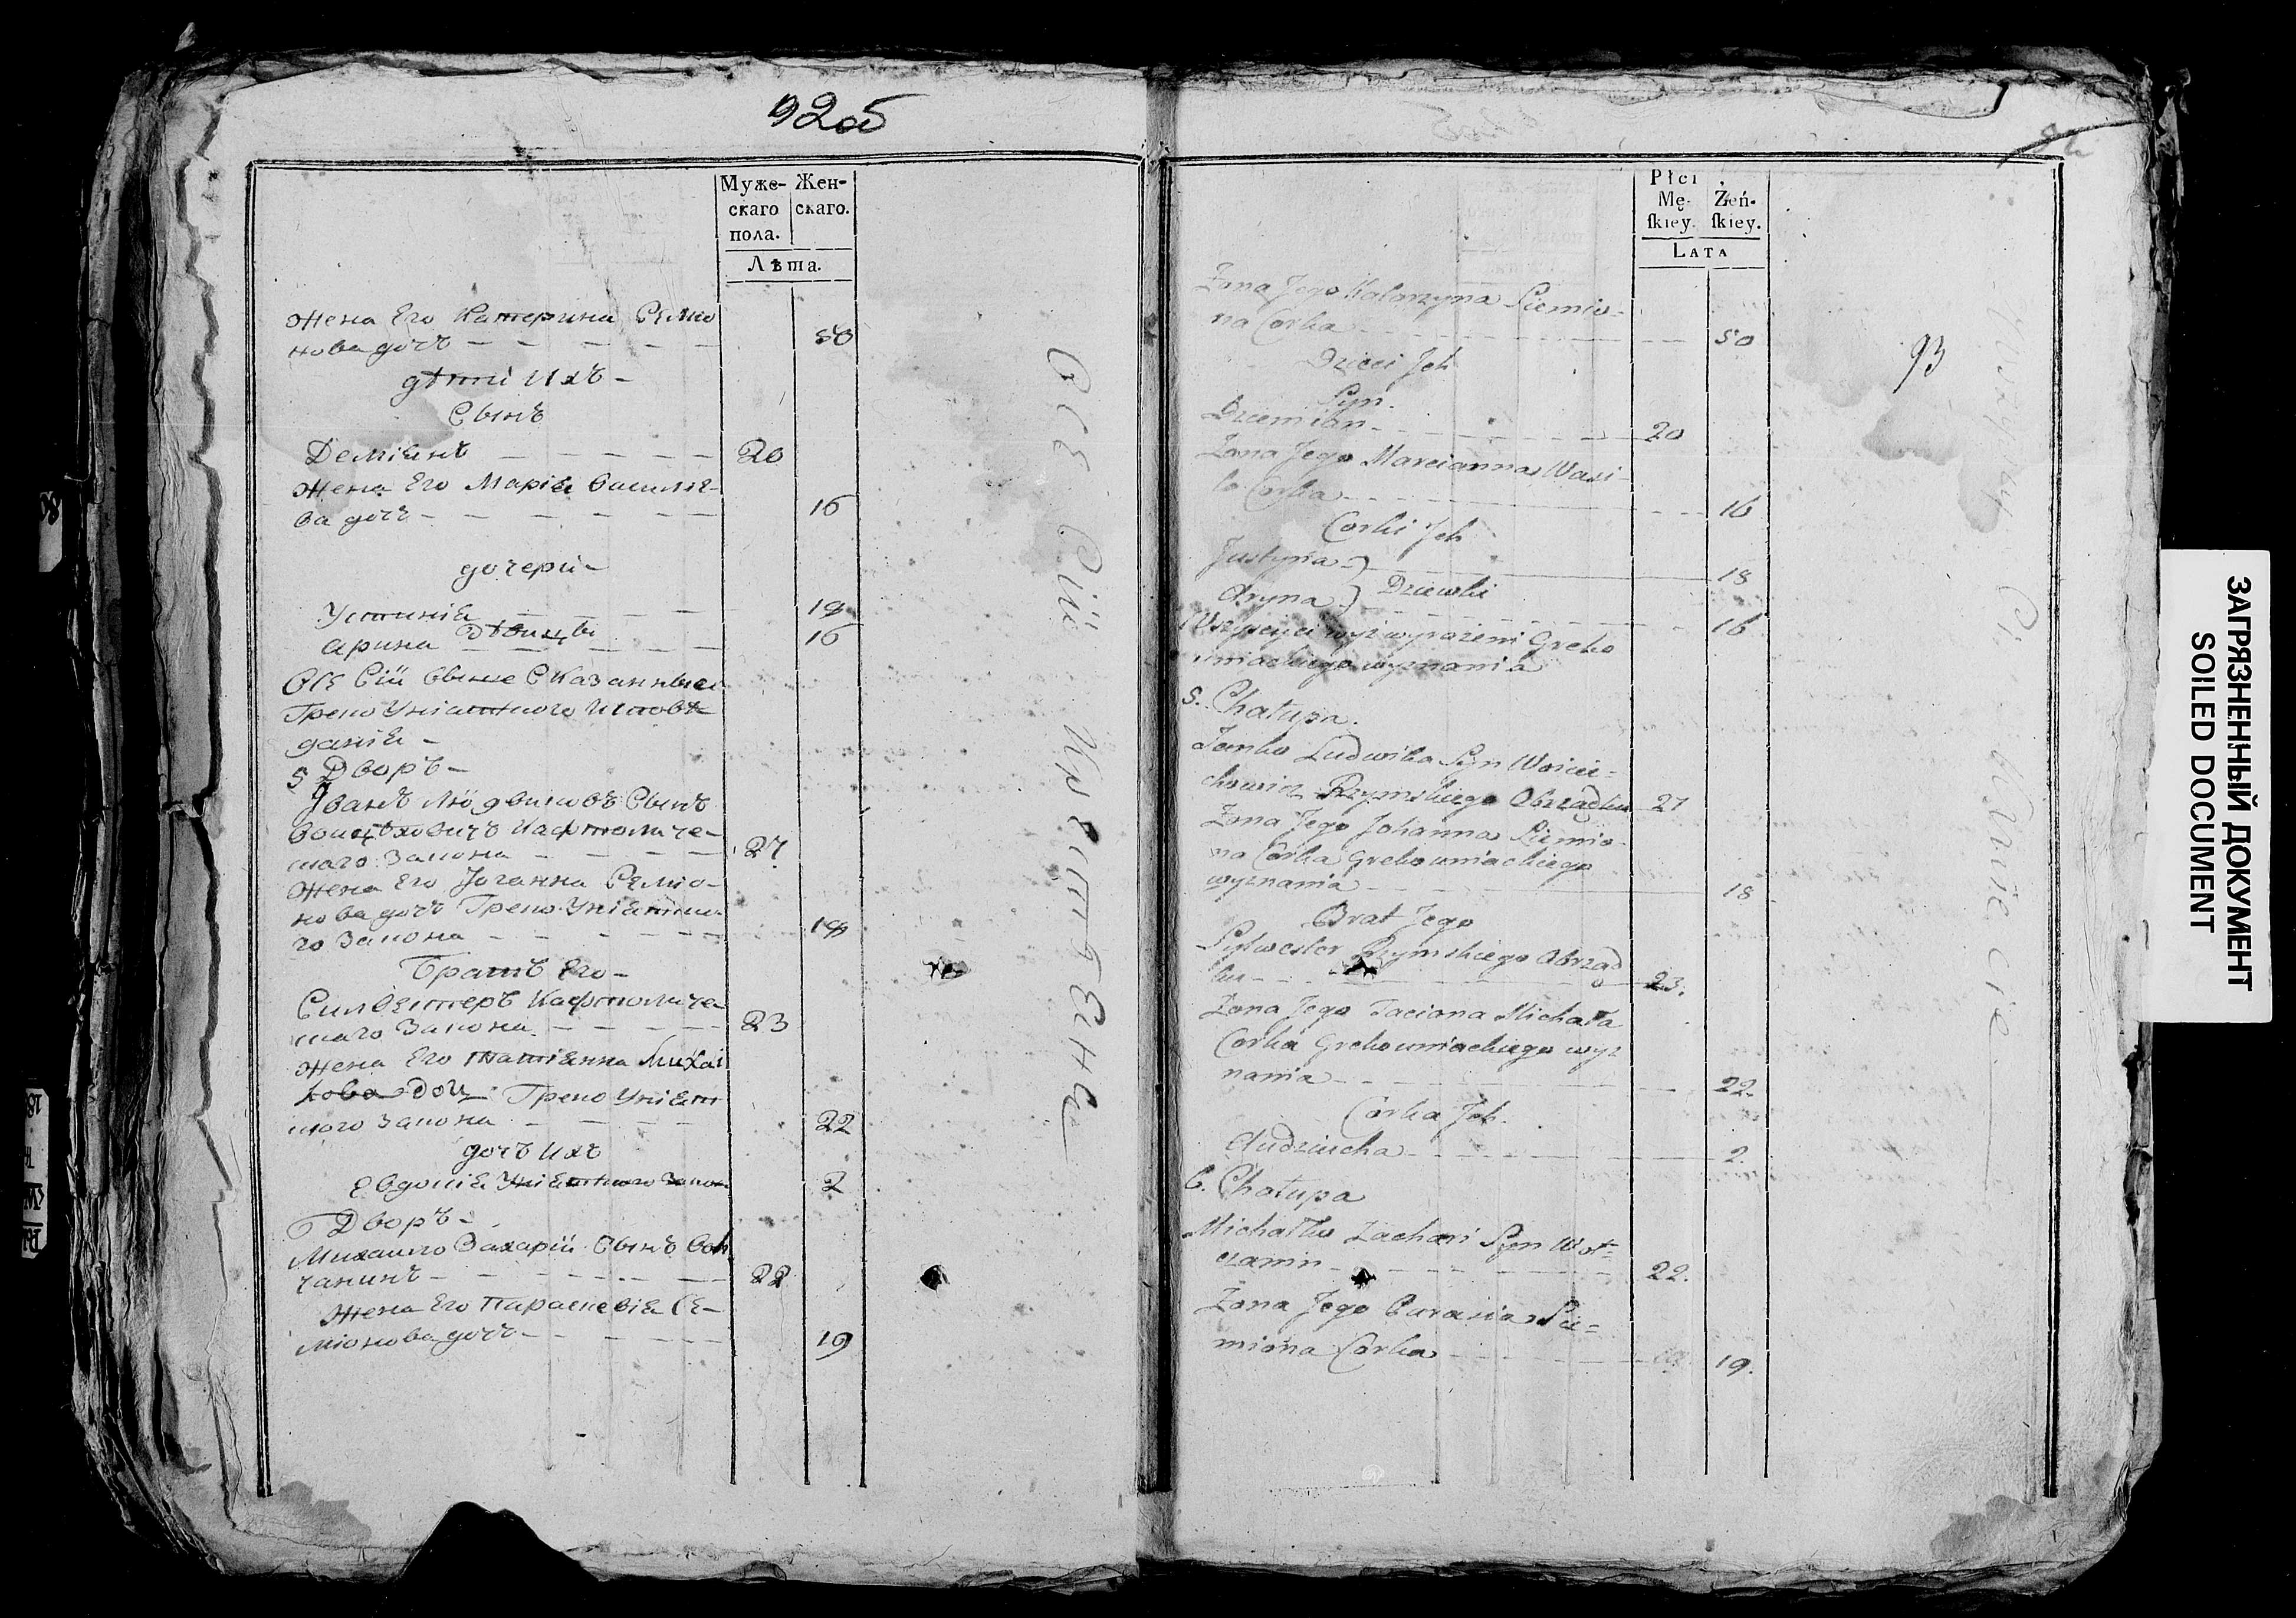 92об
Муже-
скаго
пола.
Жен-
скаго.
Лѣта.
Жена Его Катерина Семио
нова дочь 50
дѣти Ихъ
Сынъ
Деміянъ 20
Жена Его Марія Василе-
ва дочь 16
дочери
Устинія 18
Арина Дѣвицы 16
Всѣ Сіи Свыше Сказанные
Греко Уніатского Исповѣ
данія
5 Дворъ
Иванъ Людвиковъ Сынъ
Войцѣховичъ Кафтоличе-
скаго Закона 27
Жена Его Іоганна Семио-
нова дочь Греко Уніатско-
го Закона 18
Братъ Его
Силвестеръ Кафтоличе
скаго Закона 23
Жена Его Татіянна Михай
лова доч Греко Уніат
ского Закона 22
дочь Ихъ
Евдокія Уніатского Закон 2
6 Дворъ
Михайло Захарій Сынъ Вот
чанинъ 22
Жена Его Параскевія Се-
міонова дочь 19
Всѣ Сіи Крестьяне
Płci
Mę-
ſkiey.
Żeń-
ſkiey.
LATA
93
Żona Jego Katarzyna Siemio-
na Corka 50
Dzieci Jch
Syn.
Dziemian 20
Żona Jego Marcianna Wasi-
la Corka 16
Corki Jch
Justyna 18
Aryna Dziewki 16
Wszyscy wyż wyrażeni Greko
uniackiego wyznania
5. Chałupa.
Janko Ludwika Syn Woicie-
chowicz Rzymskiego Obrządku 27
Żona Jego Johanna Siemio-
na Corka Grekouniackiego
wyznania 18
Brat Jego
Sylwester Rzymskiego Obrząd
ku 23.
Żona Jego Taciana Michała
Corka Grekouniackiego wyz
nania 22.
Corka Jch.
Audziucha 2.
6. Chałupa
Michałko Zachari Syn Wot-
czanin 22.
Żona Jego Parasia Sie-
miona Corka 19.
ЗАГРЯЗНЕННЫЙ ДОКУМЕНТ
SOILED DOCUMENT